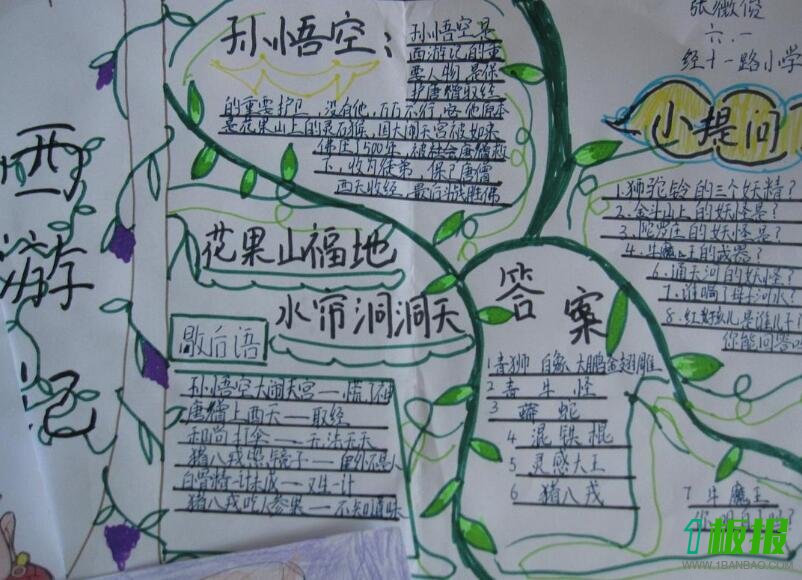 西游记
孙悟空：
孙悟空是
西游记的重
要人物，是保
护唐僧取经
的重要护卫，没有他，万万不行，
是花果山上的灵石猴，因大闹天宫被如来
佛压了500年，
下，收为徒弟，保了唐僧
西天取经，最后斗战胜佛
花果山福地
水帘洞洞天
歇后语
孙悟空大闹天宫——慌了神
唐僧上西天——取经
和尚打伞——无法无天
猪八戒照镜子——里外不是人
白骨精一计未成——又生一计
猪八戒吃人参果——不知滋味
答案
1青狮 白象 大鹏金翅雕
2 青牛怪
3 蟒蛇
4 混铁棍
5 灵感大王
6 猪八戒
7 牛魔王
张薇俊
六.一
经十一路小学
小提问
1.狮驼岭的三个妖精？
2.金斗山上的妖怪是？
3.陀罗庄的妖怪是？
4.牛魔王的武器？
6.通天河的妖怪？
7.谁喝了母子河水？
8.红孩儿是谁儿子
你能回答吗
1板报
WWW.1BANBAO.COM